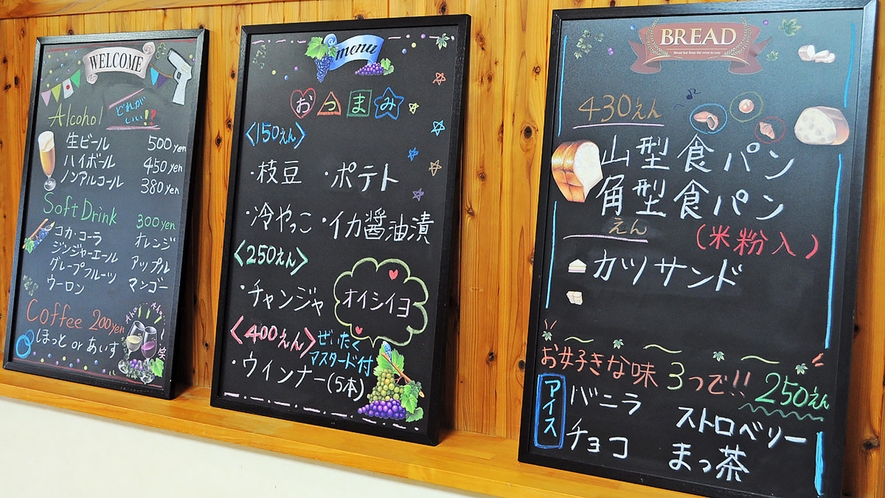 WELCOME
Alcohol どれが いい!?
生ビール 500yen
ハイボール 450yen
ノンアルコール 380yen
Soft Drink 300yen
コカ・コーラ オレンジ
ジンジャーエール アップル
グレープフルーツ マンゴー
ウーロン
Coffee 200yen
ほっと or あいす
menu
おつまみ
〈150えん〉
・枝豆 ・ポテト
・冷やっこ ・イカ醤油漬
〈250えん〉
・チャンジャ
オイシイヨ
〈400えん〉 ぜいたく マスタード付
・ウインナー(5本)
BREAD
430えん
山型食パン
角型食パン
(米粉入)
えん
カツサンド
お好きな味 3つで!! 250えん
アイス
バニラ ストロベリー
チョコ まっ茶